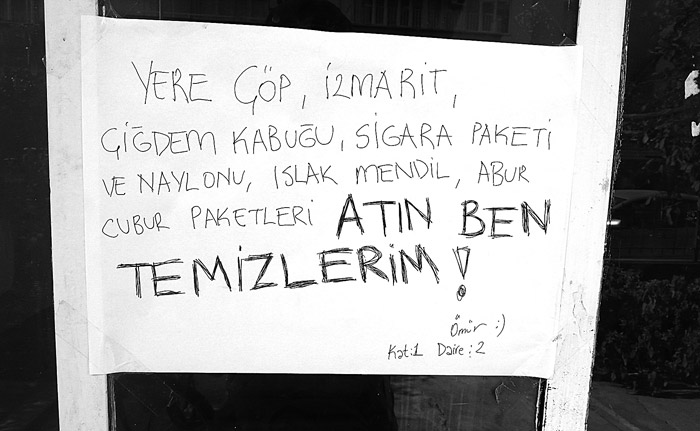 YERE ÇÖP, İZMARİT,
ÇİĞDEM KABUĞU, SİGARA PAKETİ
VE NAYLONU, ISLAK MENDİL, ABUR
CUBUR PAKETLERİ ATIN BEN
TEMİZLERİM!
Ömür :)
Kat:1 Daire:2